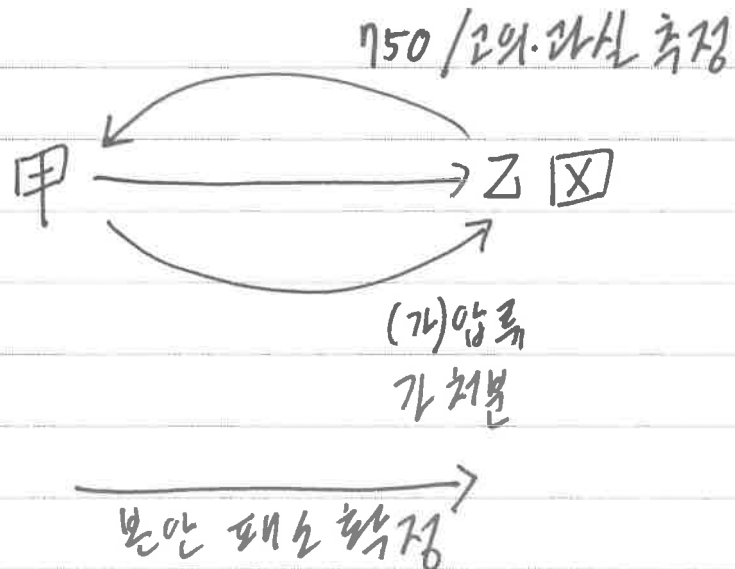 750 / 고의·과실 추정
甲 乙 X
(가)압류
가처분
본안 패소 확정